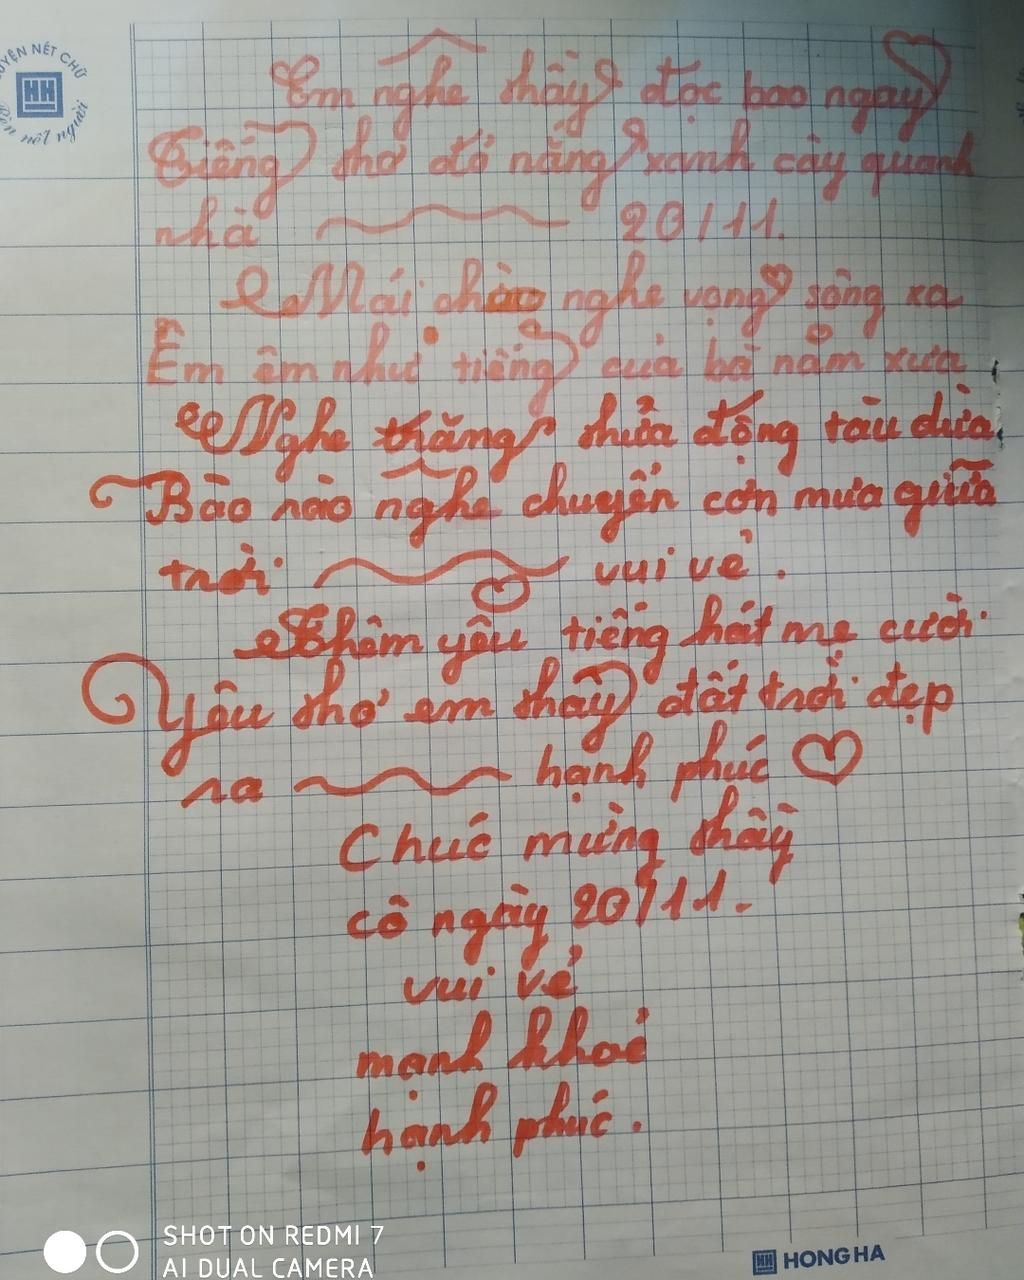 LUYỆN NÉT CHỮ
Rèn nết người
Em nghe thầy đọc bao ngày
Tiếng thơ đỏ nắng xanh cây quanh
nhà 20/11.
Mái chèo nghe vọng sông xa
Êm êm như tiếng của bà năm xưa
Nghe trăng thủa động tàu dừa
Rào rào nghe chuyển cơn mưa giữa
trời vui vẻ.
Thêm yêu tiếng hát mẹ cười
Yêu thơ em thấy đất trời đẹp
ra hạnh phúc
Chúc mừng thầy
cô ngày 20/11.
vui vẻ
mạnh khoẻ
hạnh phúc.
SHOT ON REDMI 7
AI DUAL CAMERA
HONG HA